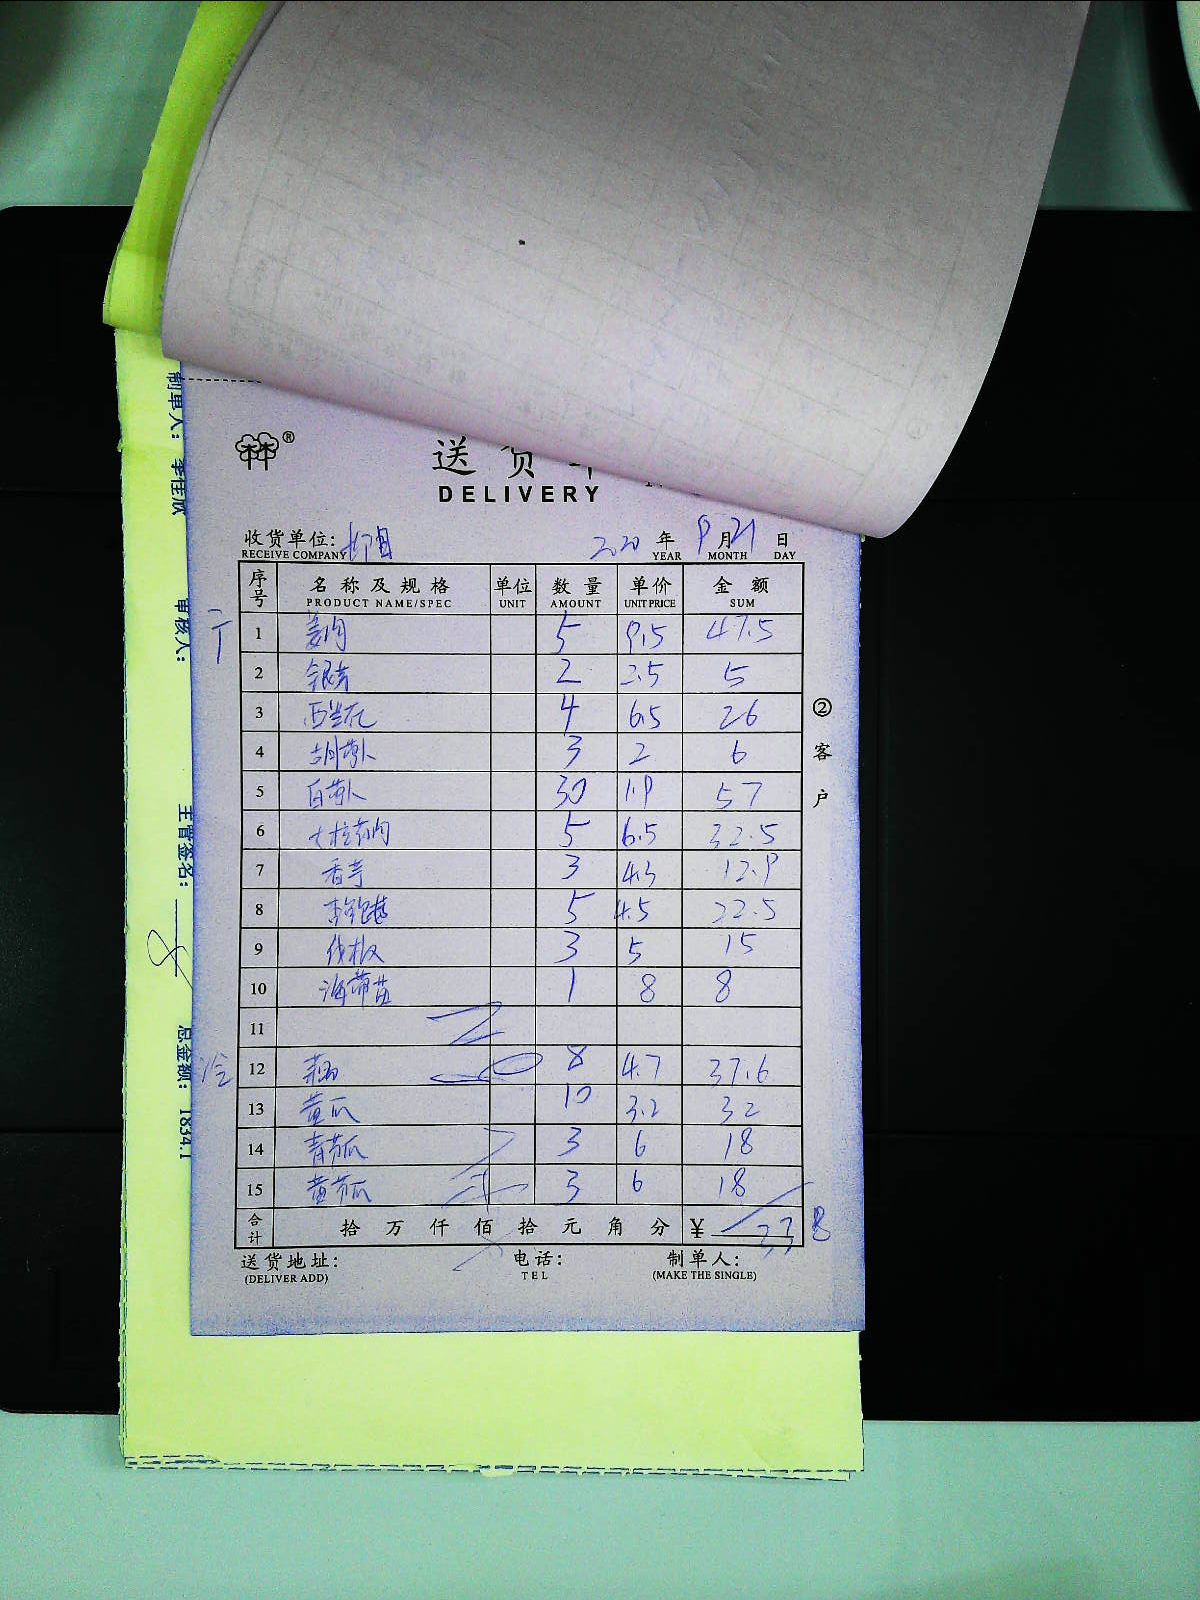 送货单
DELIVERY
收货单位: 2020 年 9 月 21 日
RECEIVE COMPANY YEAR MONTH DAY
序号 名称及规格 单位 数量 单价 金额
PRODUCT NAME/SPEC UNIT AMOUNT UNIT PRICE SUM
1 姜肉 5 9.5 47.5
2 银芽 2 2.5 5
3 西兰花 4 6.5 26
4 胡萝卜 3 2 6
5 白萝卜 30 1.9 57
6 5 6.5 32.5
7 香芋 3 4.3 12.9
8 杏鲍菇 5 4.5 22.5
9 3 5 15
10 海带苗 1 8 8
11
冷
12 8 4.7 37.6
13 黄瓜 10 3.2 32
14 青节瓜 3 6 18
15 黄节瓜 3 6 18
合计 拾万仟佰拾元角分 ¥ 338
送货地址: 电话: 制单人:
(DELIVER ADD) TEL (MAKE THE SINGLE)
②客户
制单人: 李佳欣
审核人:
主管签名:
总金额: 1834.1